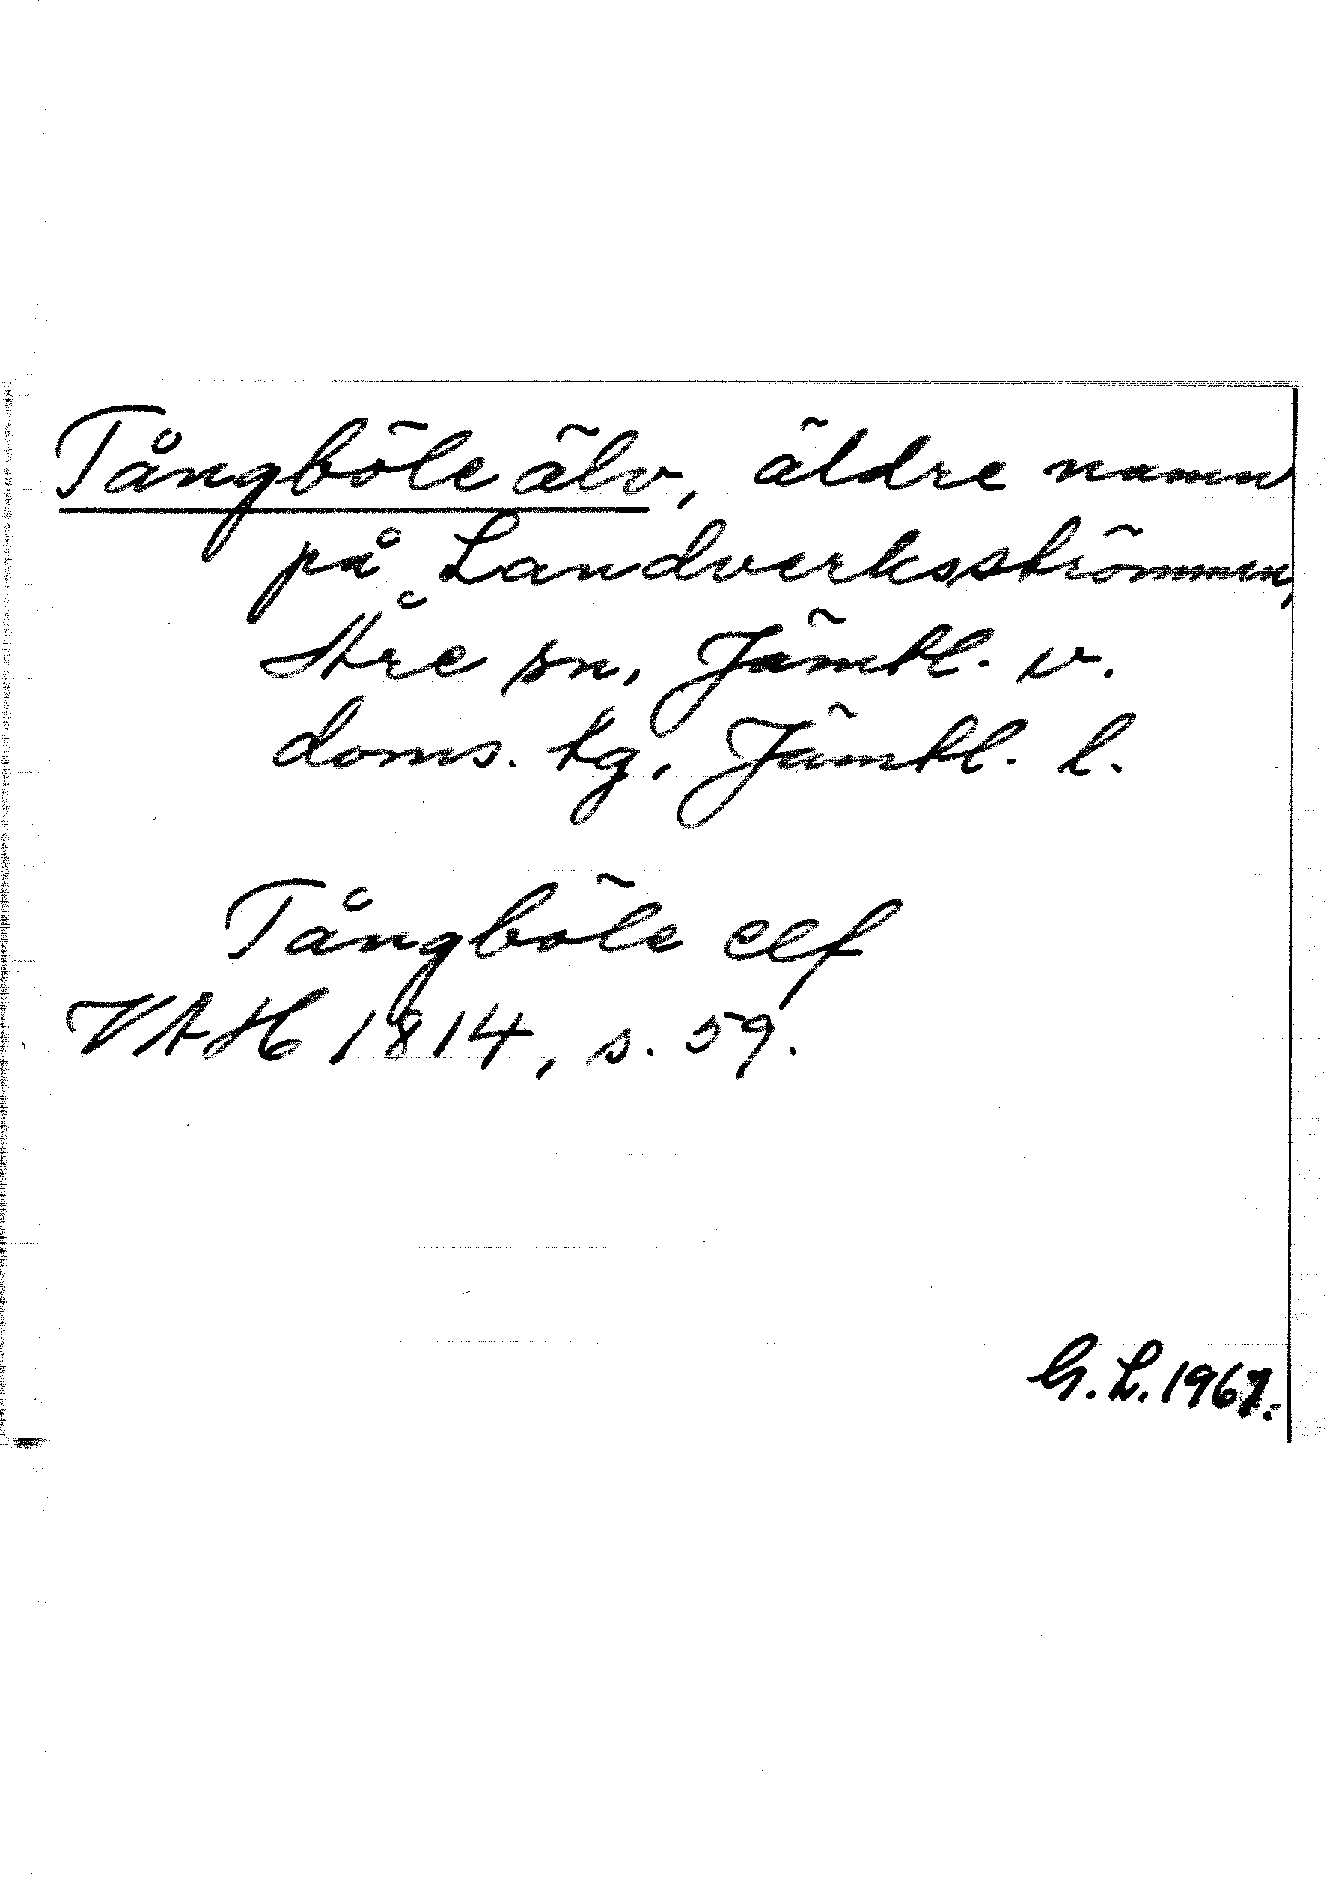 Tångböle älv, äldre namn
på Landverksströmmen,
Åre sn, Jämtl. v.
doms. tg, Jämtl. l.
Tångböle elf
VAH 1814, s. 59.
G. L. 1967.